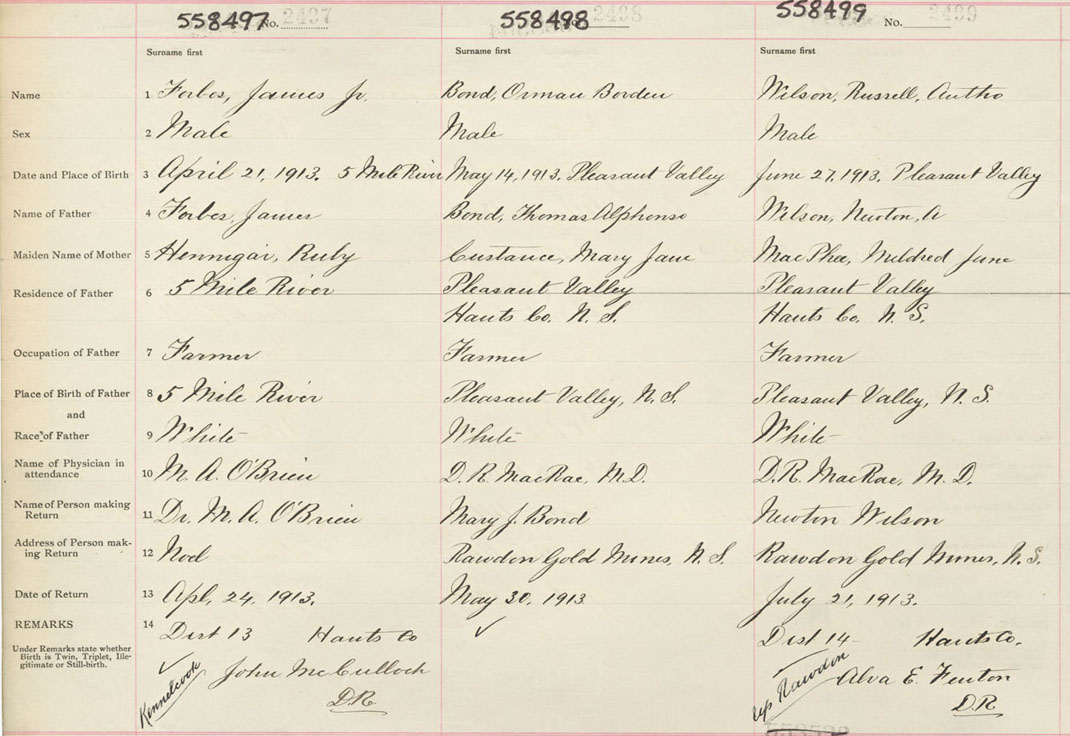 558497 No. 2497 558498 2498 558499 No. 2499
Surname first Surname first Surname first
Name 1 Forbes, James Jr. Bond, Orman Borden Wilson, Russell, Autho
Sex 2 Male Male Male
Date and Place of Birth 3 April 21, 1913. 5 Mile River May 14, 1913. Pleasant Valley June 27, 1913. Pleasant Valley
Name of Father 4 Forbes, James Bond, Thomas Alphonso Wilson, Newton, A
Maiden Name of Mother 5 Hennigar, Ruby Custance, Mary Jane MacPhee, Mildred June
Residence of Father 6 5 Mile River Pleasant Valley Pleasant Valley
Hants Co. N. S. Hants Co. N. S.
Occupation of Father 7 Farmer Farmer Farmer
Place of Birth of Father 8 5 Mile River Pleasant Valley, N. S. Pleasant Valley, N. S.
and
Race of Father 9 White White White
Name of Physician in
attendance 10 M. A. O'Brien D. R. MacRae, M.D. D.R. MacRae, M. D.
Name of Person making
Return 11 Dr. M. A. O'Brien Mary J. Bond Newton Wilson
Address of Person mak-
ing Return 12 Noel Rawdon Gold Mines, N. S. Rawdon Gold Mines, N. S.
Date of Return 13 Apl, 24, 1913. May 30, 1913 July 21, 1913.
REMARKS 14 Dist 13 Hants Co ✓ Dist 14 Hants Co.
Under Remarks state whether
Birth is Twin, Triplet, Ille-
gitimate or Still-birth.
✓ Kennetcook John McCulloch Rawdon Alva E. Fenton
D.R. D.R